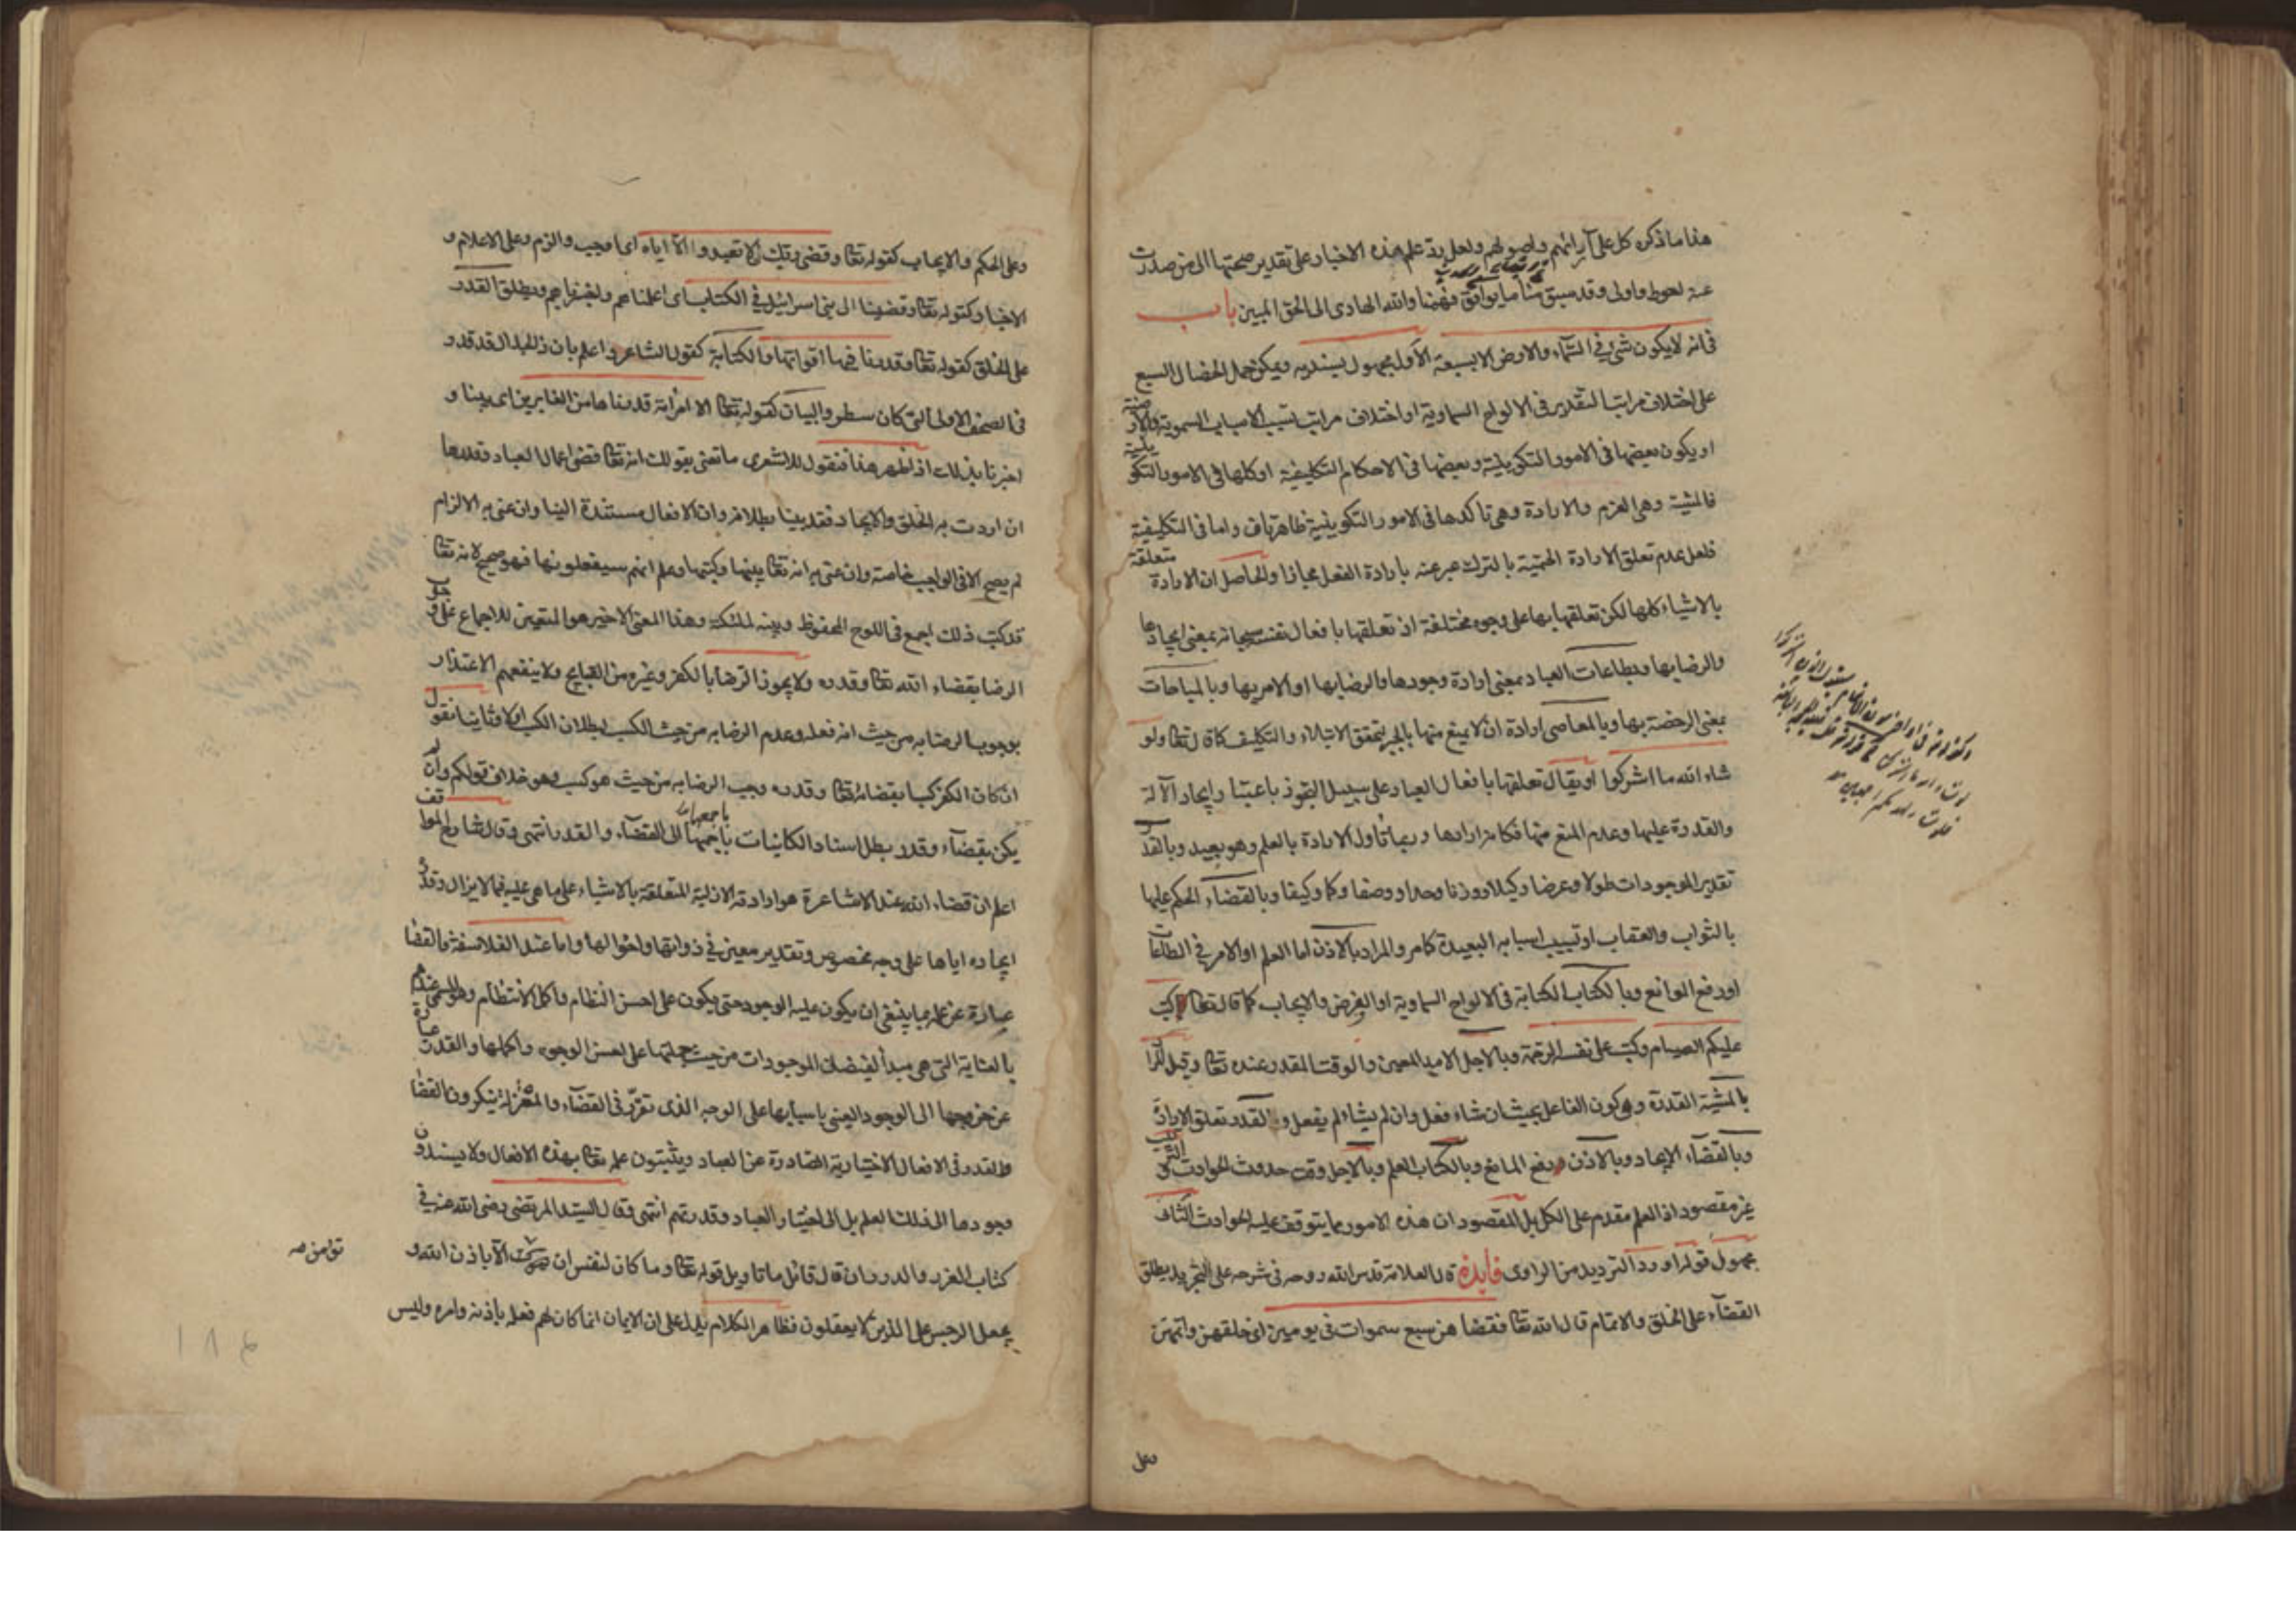 هذا ما ذكره كل على آرائهم واصولهم ولعل رد علم هذه الاخبار على تقدير صحتها الى من صدرت
عنه احوط واولى وقد سبق منا ما يوافق فهمنا والله الهادى الى الحق المبين باب
فى انه لا يكون شئ فى السماء والارض الا بسبعة الاول مجهول بسنديه ويمكن حمل الخصال السبع
على اختلاف مراتب التقدير فى الالواح السماوية او اختلاف مراتب تسبب الاسباب السموية والارضية
او يكون بعضها فى الامور التكوينية وبعضها فى الاحكام التكليفية او كلها فى الامور التكوينية
فالمشية وهى العزم والارادة وهى تاكدها فى الامور التكوينية ظاهرتان واما فى التكليفية
فلعل عدم تعلق الارادة الحتمية بالترك عبر عنه بارادة الفعل مجازا والحاصل ان الارادة متعلقة
بالاشياء كلها لكن تعلقها بها على وجوه مختلفة اذ تعلقها بافعال نفسه سبحانه بمعنى ايجادها
والرضا بها وبطاعات العباد بمعنى ارادة وجودها والرضا بها او الامر بها وبالمباحات
بمعنى الرخصة بها وبالمعاصى ارادة ان لا يمنع منها بالجبر لتحقق الابتلاء والتكليف كما قال تعا ولو
شاء الله ما اشركوا او يقال تعلقها بافعال العباد على سبيل التجوز باعتبار ايجاد الآلة
والقدرة عليها وعدم المنع منها فكانه ارادها وربما تأول الارادة بالعلم وهو بعيد وبالقدر
تقدير الموجودات طولا وعرضا وكيلا ووزنا وحدا ووصفا وكما وكيفا وبالقضاء الحكم عليها
بالثواب والعقاب او تسبيب اسبابه البعيدة كما مر والمراد بالاذن اما العلم او الامر فى الطاعات
او رفع الموانع وبالكتاب الكتابة فى الالواح السماوية او الفرض والايجاب كما قال تعا كتب
عليكم الصيام وكتب على نفسه الرحمة وبالاجل الامد المعين والوقت المقدر عنده تعا وقيل المراد
بالمشية القدرة وهى كون الفاعل بحيث ان شاء فعل وان لم يشاء لم يفعل وبالقدر تعلق الارادة
وبالقضاء الايجاد وبالاذن دفع المانع وبالكتاب العلم وبالاجل وقت حدوث الحوادث والترتيب
غير مقصود اذ العلم مقدم على الكل بل المقصود ان هذه الامور مما يتوقف عليه الحوادث الثانى
مجهول قوله او رد الترديد من الراوى فايدة قال العلامة قدس الله روحه فى شرحه على التجريد يطلق
القضاء على الخلق والاتمام قال الله تعا فقضاهن سبع سموات فى يومين اى خلقهن واتمهن
وعلى
وعلى الحكم والايجاب كقوله تعا وقضى ربك الا تعبدوا الا اياه اى اوجب والزم وعلى الاعلام و
الاخبار كقوله تعا وقضينا الى بنى اسرائيل فى الكتاب اى اعلمناهم واخبرناهم ويطلق القدر
على الخلق كقوله تعا وقدر فيها اقواتها والكتابة كقول الشاعر واعلم بان ذا الجلال قد قدر
فى الصحف الاولى التى كان سطر والبيان كقوله تعا الا امراته قدرناها من الغابرين اى بينا و
اخبرنا بذلك اذا ظهر هذا فنقول للاشعرى ما تعنى بقولك انه تعا قضى اعمال العباد وقدرها
ان اردت به الخلق والايجاد فقد بينا بطلانه وان الافعال مستندة الينا وان عنى به الالزام
لم يصح الا فى الواجب خاصة وان عنى به انه تعا بينها وكتبها وعلم انهم سيفعلونها فهو صحيح لانه تعا
قد كتب ذلك اجمع فى اللوح المحفوظ وبينه لملئكته وهذا المعنى الاخير هو المتعين للاجماع على وجوب
الرضا بقضاء الله تعا وقدره ولا يجوز الرضا بالكفر وغيره من القبايح ولا ينفعهم الاعتذار
بوجوب الرضا به من حيث انه فعله وعدم الرضا به من حيث الكسب لبطلان الكسب اولا وثانيا نقول
ان كان الكفر كسبا بقضائه تعا وقدره وجب الرضا به من حيث هو كسب وهو خلاف قولكم وان لم
يكن بقضاء وقدر بطل اسناد الكائنات باجمعها الى القضاء والقدر انتهى وقال شارح المواقف
اعلم ان قضاء الله عند الاشاعرة هو ارادته الازلية المتعلقة بالاشياء على ما هى عليه فيما لا يزال وقدره
ايجاده اياها على وجه مخصوص وتقدير معين فى ذواتها واحوالها واما عند الفلاسفة فالقضا
عبارة عن علمه بما ينبغى ان يكون عليه الوجود حتى يكون على احسن النظام واكمل الانتظام وهو المسمى عندهم
بالعناية التى هى مبدأ لفيضان الموجودات من حيث جملتها على احسن الوجوه واكملها والقدر عبارة
عن خروجها الى الوجود العينى باسبابها على الوجه الذى تقرر فى القضاء والمعتزلة ينكرون القضا
والقدر فى الافعال الاختيارية الصادرة عن العباد ويثبتون علمه تعا بهذه الافعال ولا يسندون
وجودها الى ذلك العلم بل الى اختيار العباد وقدرتهم انتهى وقال السيد المرتضى رضى الله عنه فى
كتاب الغرر والدرر ان قال قائل ما تاويل قوله تعا وما كان لنفس ان الا باذن الله و
تؤمن صه
يجعل الرجس على الذين لا يعقلون فظاهر الكلام يدل على ان الايمان انما كان لهم فعله باذنه وامره وليس